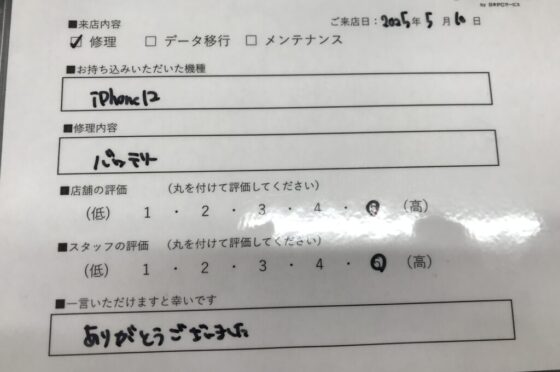 by 日本PCサービス
■来店内容 ご来店日：2025年5月10日
☑ 修理 □ データ移行 □ メンテナンス
■お持ち込みいただいた機種
iPhone12
■修理内容
バッテリー
■店舗の評価 （丸を付けて評価してください）
（低） 1 ・ 2 ・ 3 ・ 4 ・ 5 （高）
■スタッフの評価 （丸を付けて評価してください）
（低） 1 ・ 2 ・ 3 ・ 4 ・ 5 （高）
■一言いただけますと幸いです
ありがとうございました